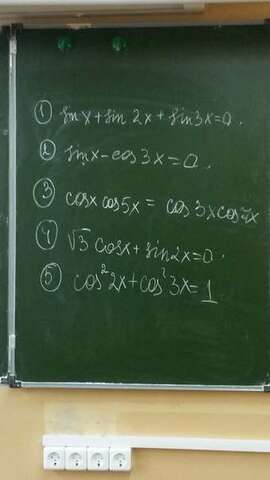 ① sin x + sin 2x + sin 3x = 0.
② sin x - cos 3x = 0.
③ cos x cos 5x = cos 3x cos 7x
④ √3 cos x + sin 2x = 0.
⑤ cos² 2x + cos² 3x = 1